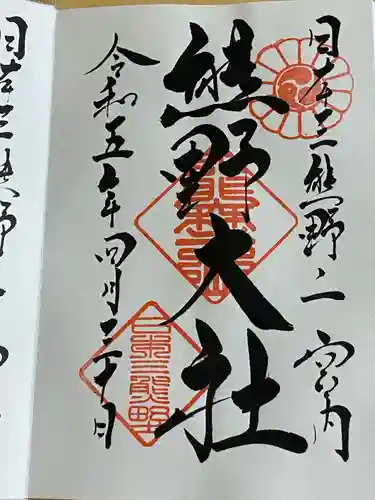 日本三熊野ノ一
宮内
熊野大社
令和五年四月二十日
日本三熊野